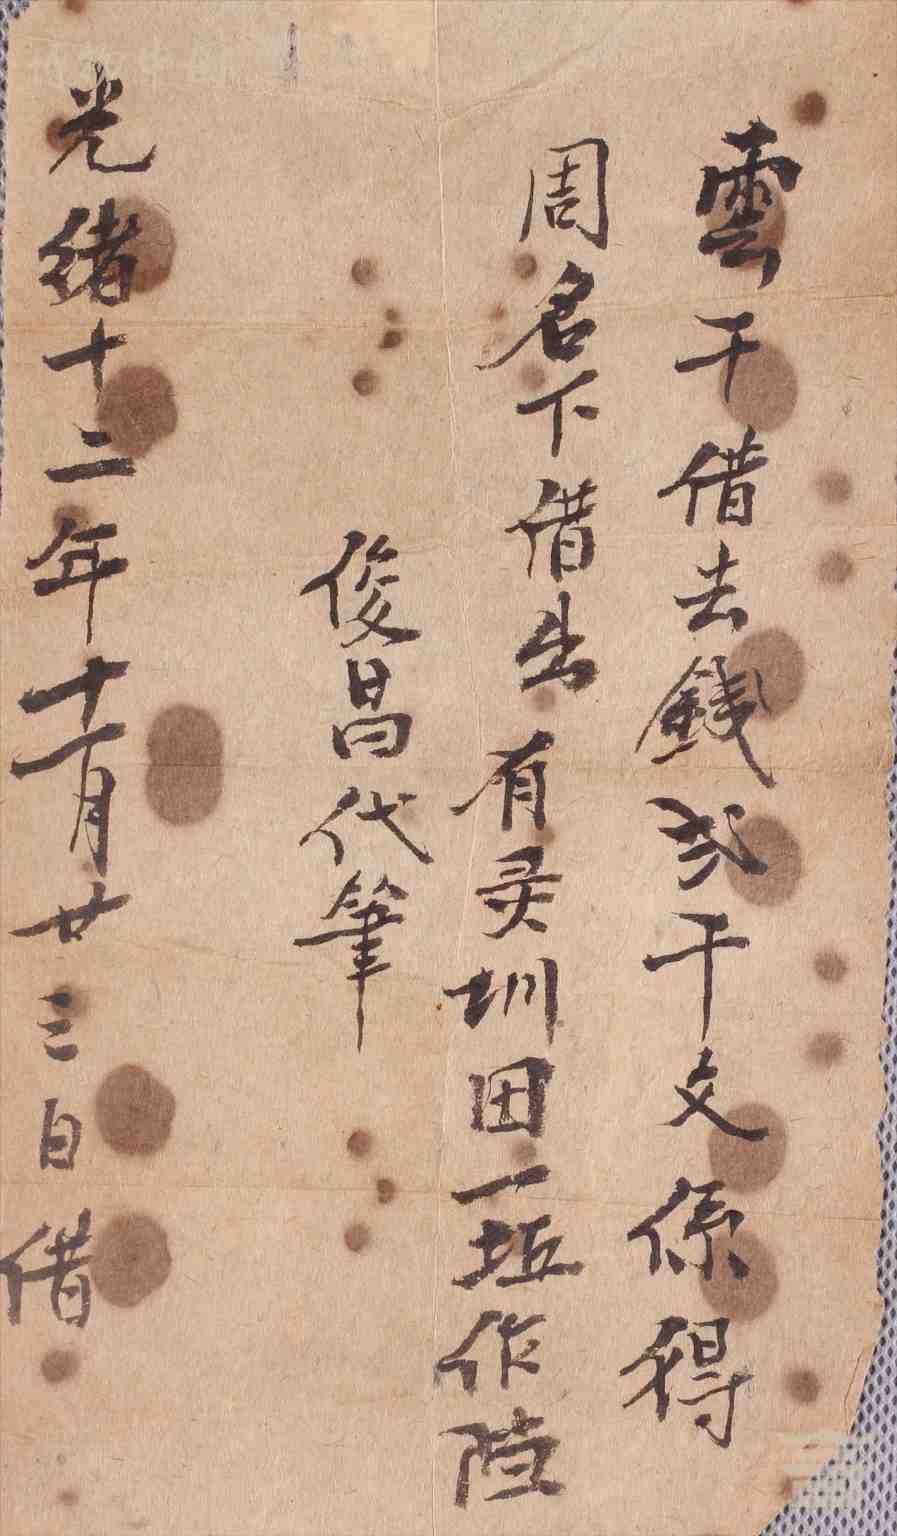 雲干借去錢弍千文係得
周名下借出有灵圳田一坵作
俊昌代筆
光緒十二年十一月廿三日借